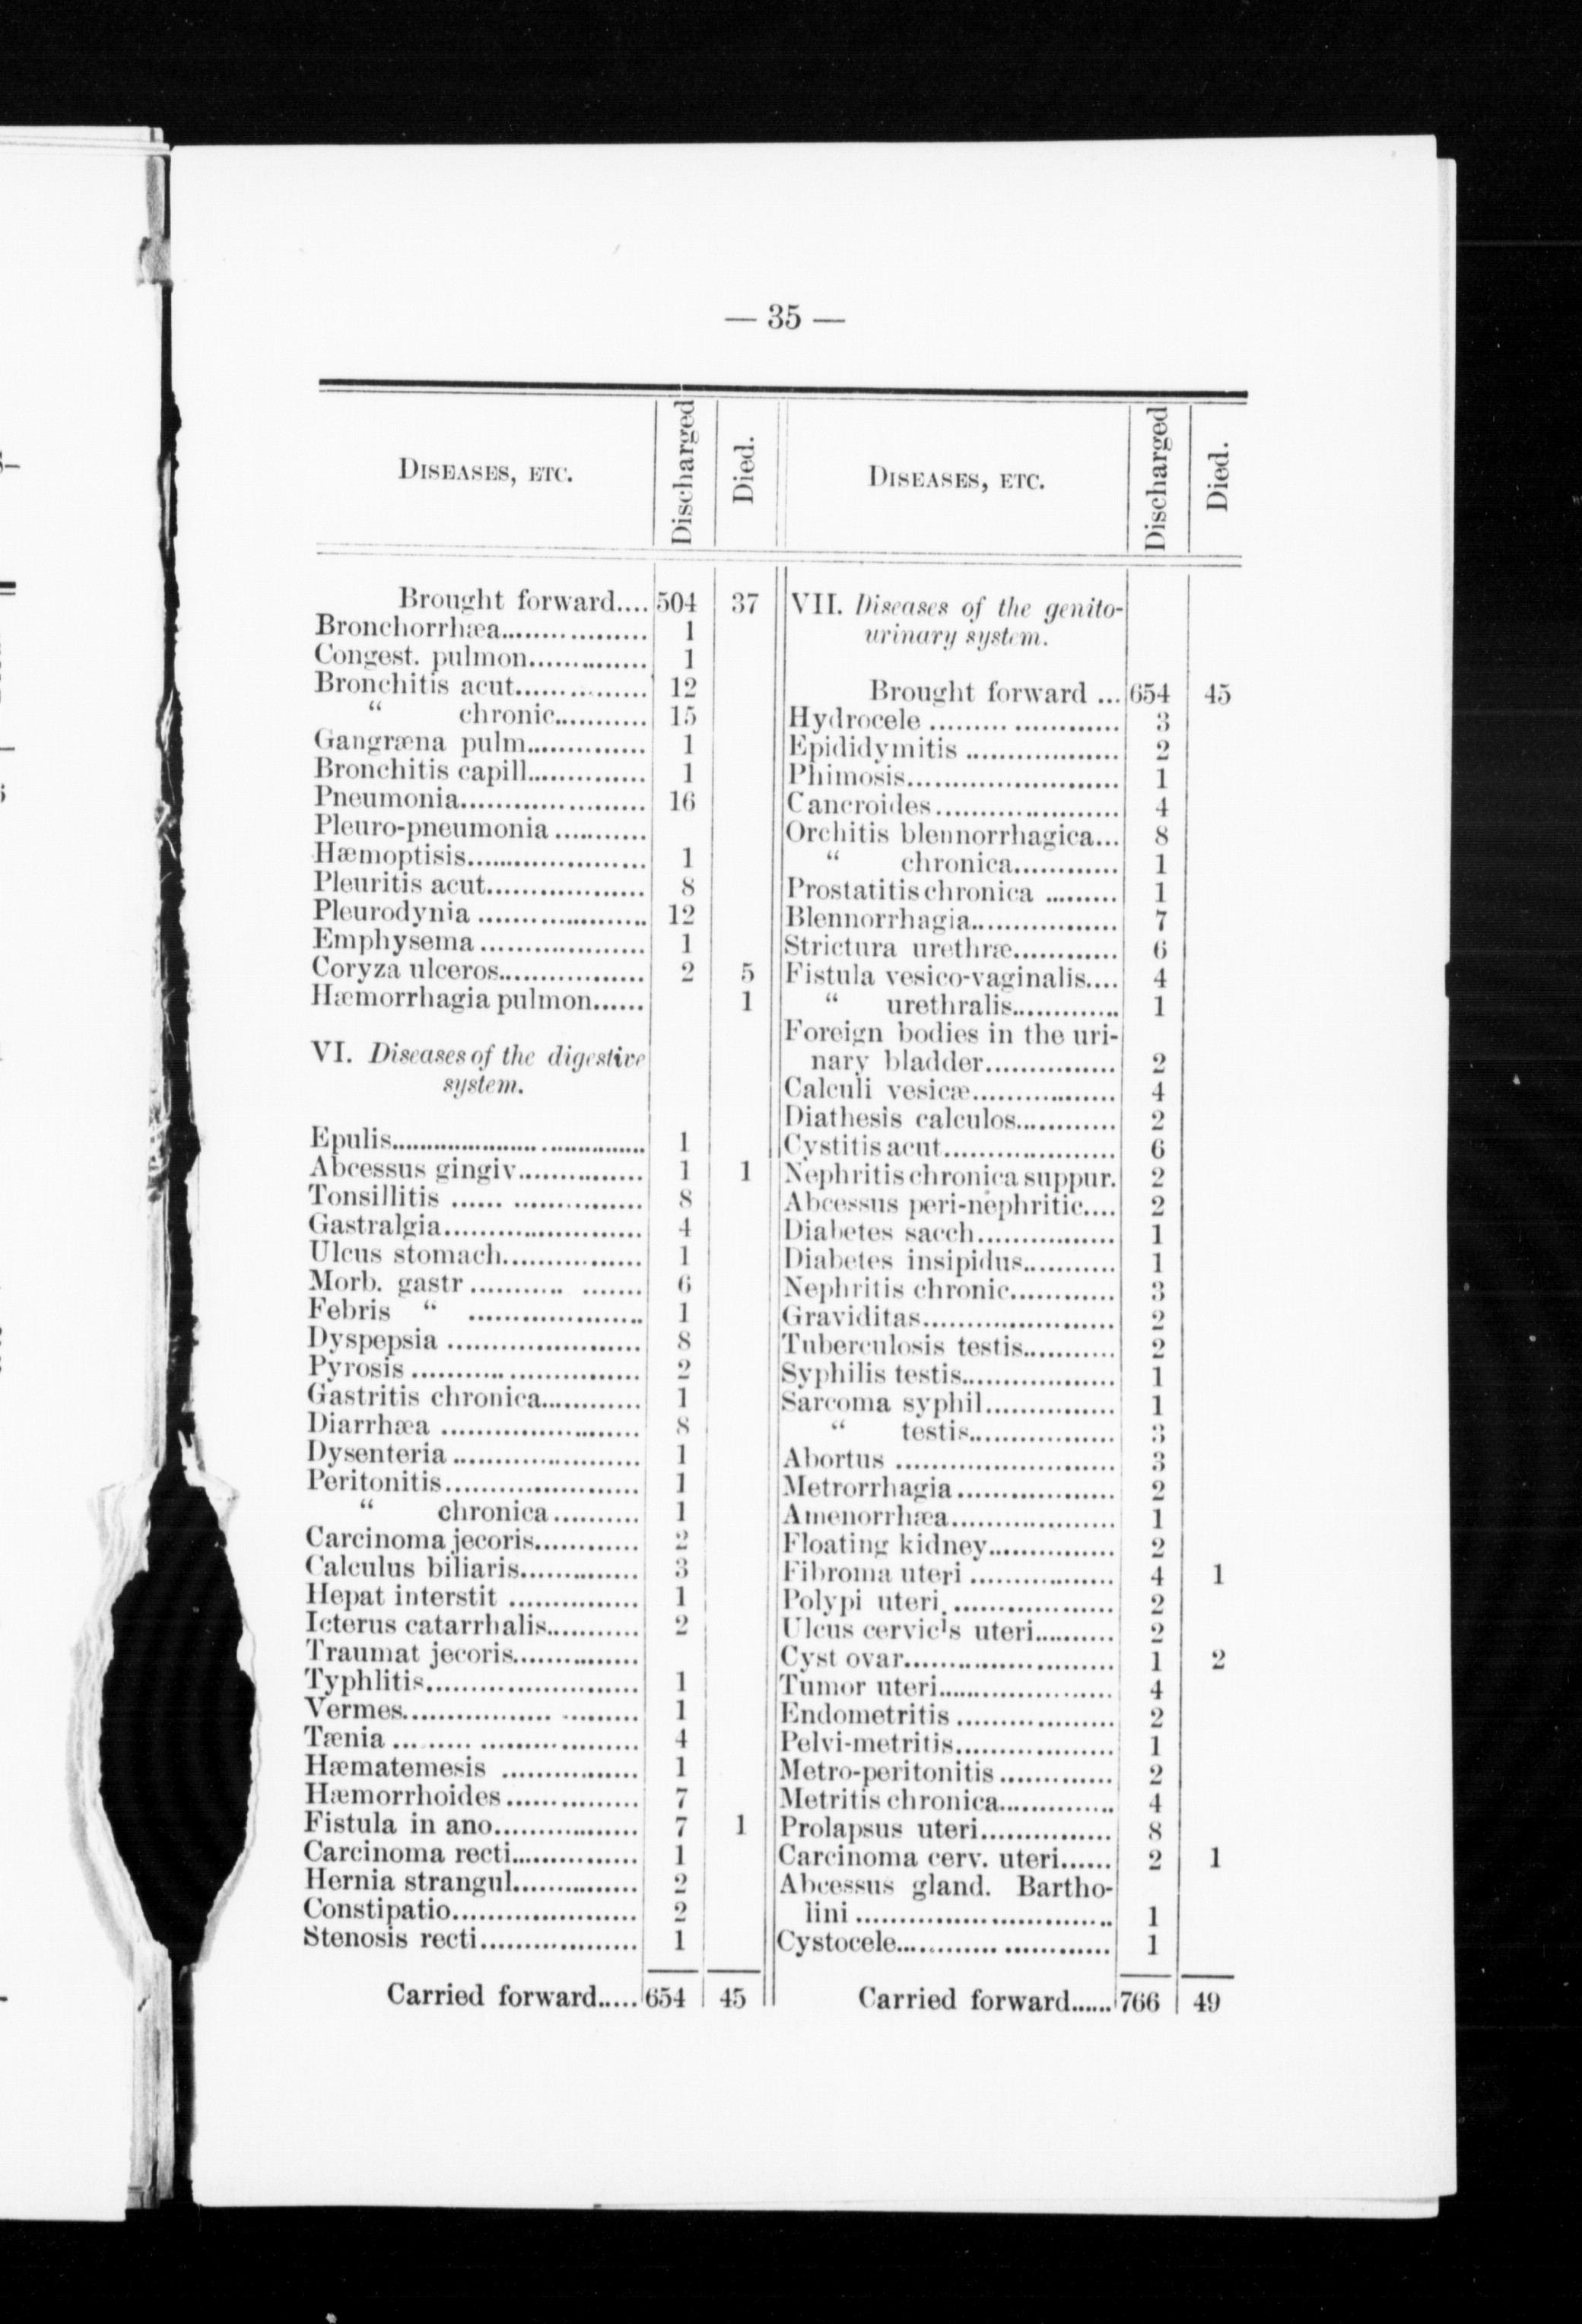 — 35 —
DISEASES, ETC. Discharged Died.
Brought forward.... 504 37
Bronchorrhæa.................. 1
Congest. pulmon.............. 1
Bronchitis acut............... 12
“ chronic........... 15
Gangræna pulm.............. 1
Bronchitis capill.............. 1
Pneumonia...................... 16
Pleuro-pneumonia ...........
Hæmoptisis..................... 1
Pleuritis acut................... 8
Pleurodynia .................... 12
Emphysema ................... 1
Coryza ulceros................. 2 5
Hæmorrhagia pulmon...... 1
VI. Diseases of the digestive
system.
Epulis.............................. 1
Abcessus gingiv............... 1 1
Tonsillitis ...... ............... 8
Gastralgia....................... 4
Ulcus stomach................ 1
Morb. gastr ........... ....... 6
Febris “ .................... 1
Dyspepsia ...................... 8
Pyrosis .......................... 2
Gastritis chronica............ 1
Diarrhæa ....................... 8
Dysenteria ...................... 1
Peritonitis....................... 1
“ chronica.......... 1
Carcinoma jecoris............ 2
Calculus biliaris.............. 3
Hepat interstit ............... 1
Icterus catarrhalis........... 2
Traumat jecoris...............
Typhlitis......................... 1
Vermes................. ......... 1
Tænia ... ...... ................... 4
Hæmatemesis ................ 1
Hæmorrhoides ............... 7
Fistula in ano................. 7 1
Carcinoma recti............... 1
Hernia strangul............... 2
Constipatio...................... 2
Stenosis recti................... 1
Carried forward..... 654 45
DISEASES, ETC. Discharged Died.
VII. Diseases of the genito-
urinary system.
Brought forward ... 654 45
Hydrocele ......... ............ 3
Epididymitis .................. 2
Phimosis......................... 1
Cancroides...................... 4
Orchitis blennorrhagica... 8
“ chronica............ 1
Prostatitis chronica ......... 1
Blennorrhagia................. 7
Strictura urethræ............ 6
Fistula vesico-vaginalis.... 4
“ urethralis............. 1
Foreign bodies in the uri-
nary bladder............... 2
Calculi vesicæ................. 4
Diathesis calculos............ 2
Cystitis acut.................... 6
Nephritis chronica suppur. 2
Abcessus peri-nephritic.... 2
Diabetes sacch................ 1
Diabetes insipidus........... 1
Nephritis chronic............ 3
Graviditas....................... 2
Tuberculosis testis........... 2
Syphilis testis.................. 1
Sarcoma syphil............... 1
“ testis................. 3
Abortus .......................... 3
Metrorrhagia ................... 2
Amenorrhæa.................... 1
Floating kidney............... 2
Fibroma uteri ................. 4 1
Polypi uteri. ................... 2
Ulcus cervicis uteri.......... 2
Cyst ovar......................... 1 2
Tumor uteri..................... 4
Endometritis ................... 2
Pelvi-metritis................... 1
Metro-peritonitis ............. 2
Metritis chronica.............. 4
Prolapsus uteri................ 8
Carcinoma cerv. uteri...... 2 1
Abcessus gland. Bartho-
lini ............................... 1
Cystocele............ ............ 1
Carried forward...... 766 49